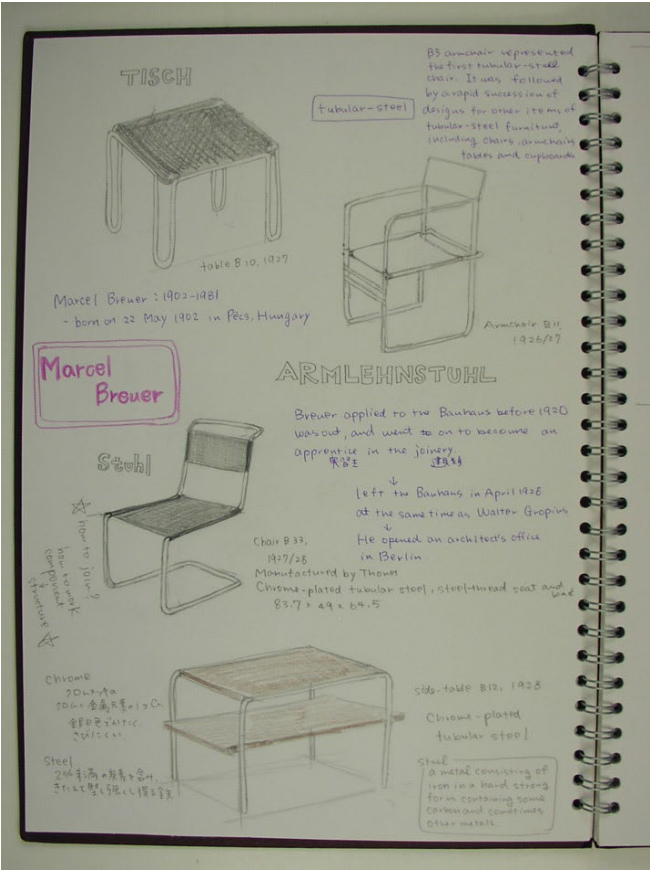 TISCH
B3 armchair represented
the first tubular-steel
chair. It was followed
by a rapid succession of
designs for other items of
tubular-steel furniture,
including chairs, armchairs
tables and cupboards
tubular-steel
table B10, 1927
Marcel Breuer : 1902-1981
- born on 22 May 1902 in Pécs, Hungary
Armchair B11,
1926/27
Marcel
Breuer
ARMLEHNSTUHL
Breuer applied to the Bauhaus before 1920
was out, and went to on to become an
apprentice in the joinery.
実習生
↓
Left the Bauhaus in April 1928
at the same time as Walter Gropius
↓
He opened an architect's office
in Berlin.
Stuhl
☆ how to join?
how to work
component
structure ☆
Chair B33,
1927/28
Manufactured by Thonet
Chrome-plated tubular steel, steel-thread seat and
back
83.7 × 49 × 64.5
Chrome
クロムメッキ
クロム: 金属元素の1つ Cr.
銀白色でかたく
さびにくい
side-table B12, 1928
Chrome-plated
tubular steel
Steel
2%未満の炭素を含み,
steel
a metal consisting of
iron in a hard strong
form containing some
carbon and sometimes
other metals.